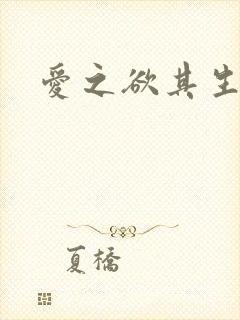 愛之欲其生
夏橋